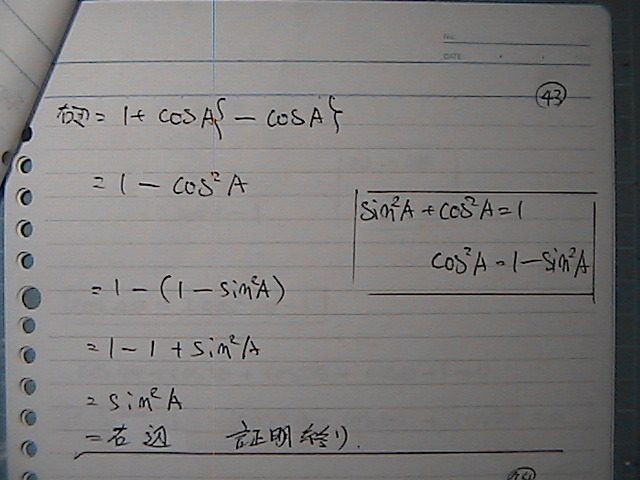 NO.
DATE
43
左辺 = 1 + cosA{ - cosA}
= 1 - cos²A
sin²A + cos²A = 1
cos²A = 1 - sin²A
= 1 - (1 - sin²A)
= 1 - 1 + sin²A
= sin²A
= 右辺 証明終り.